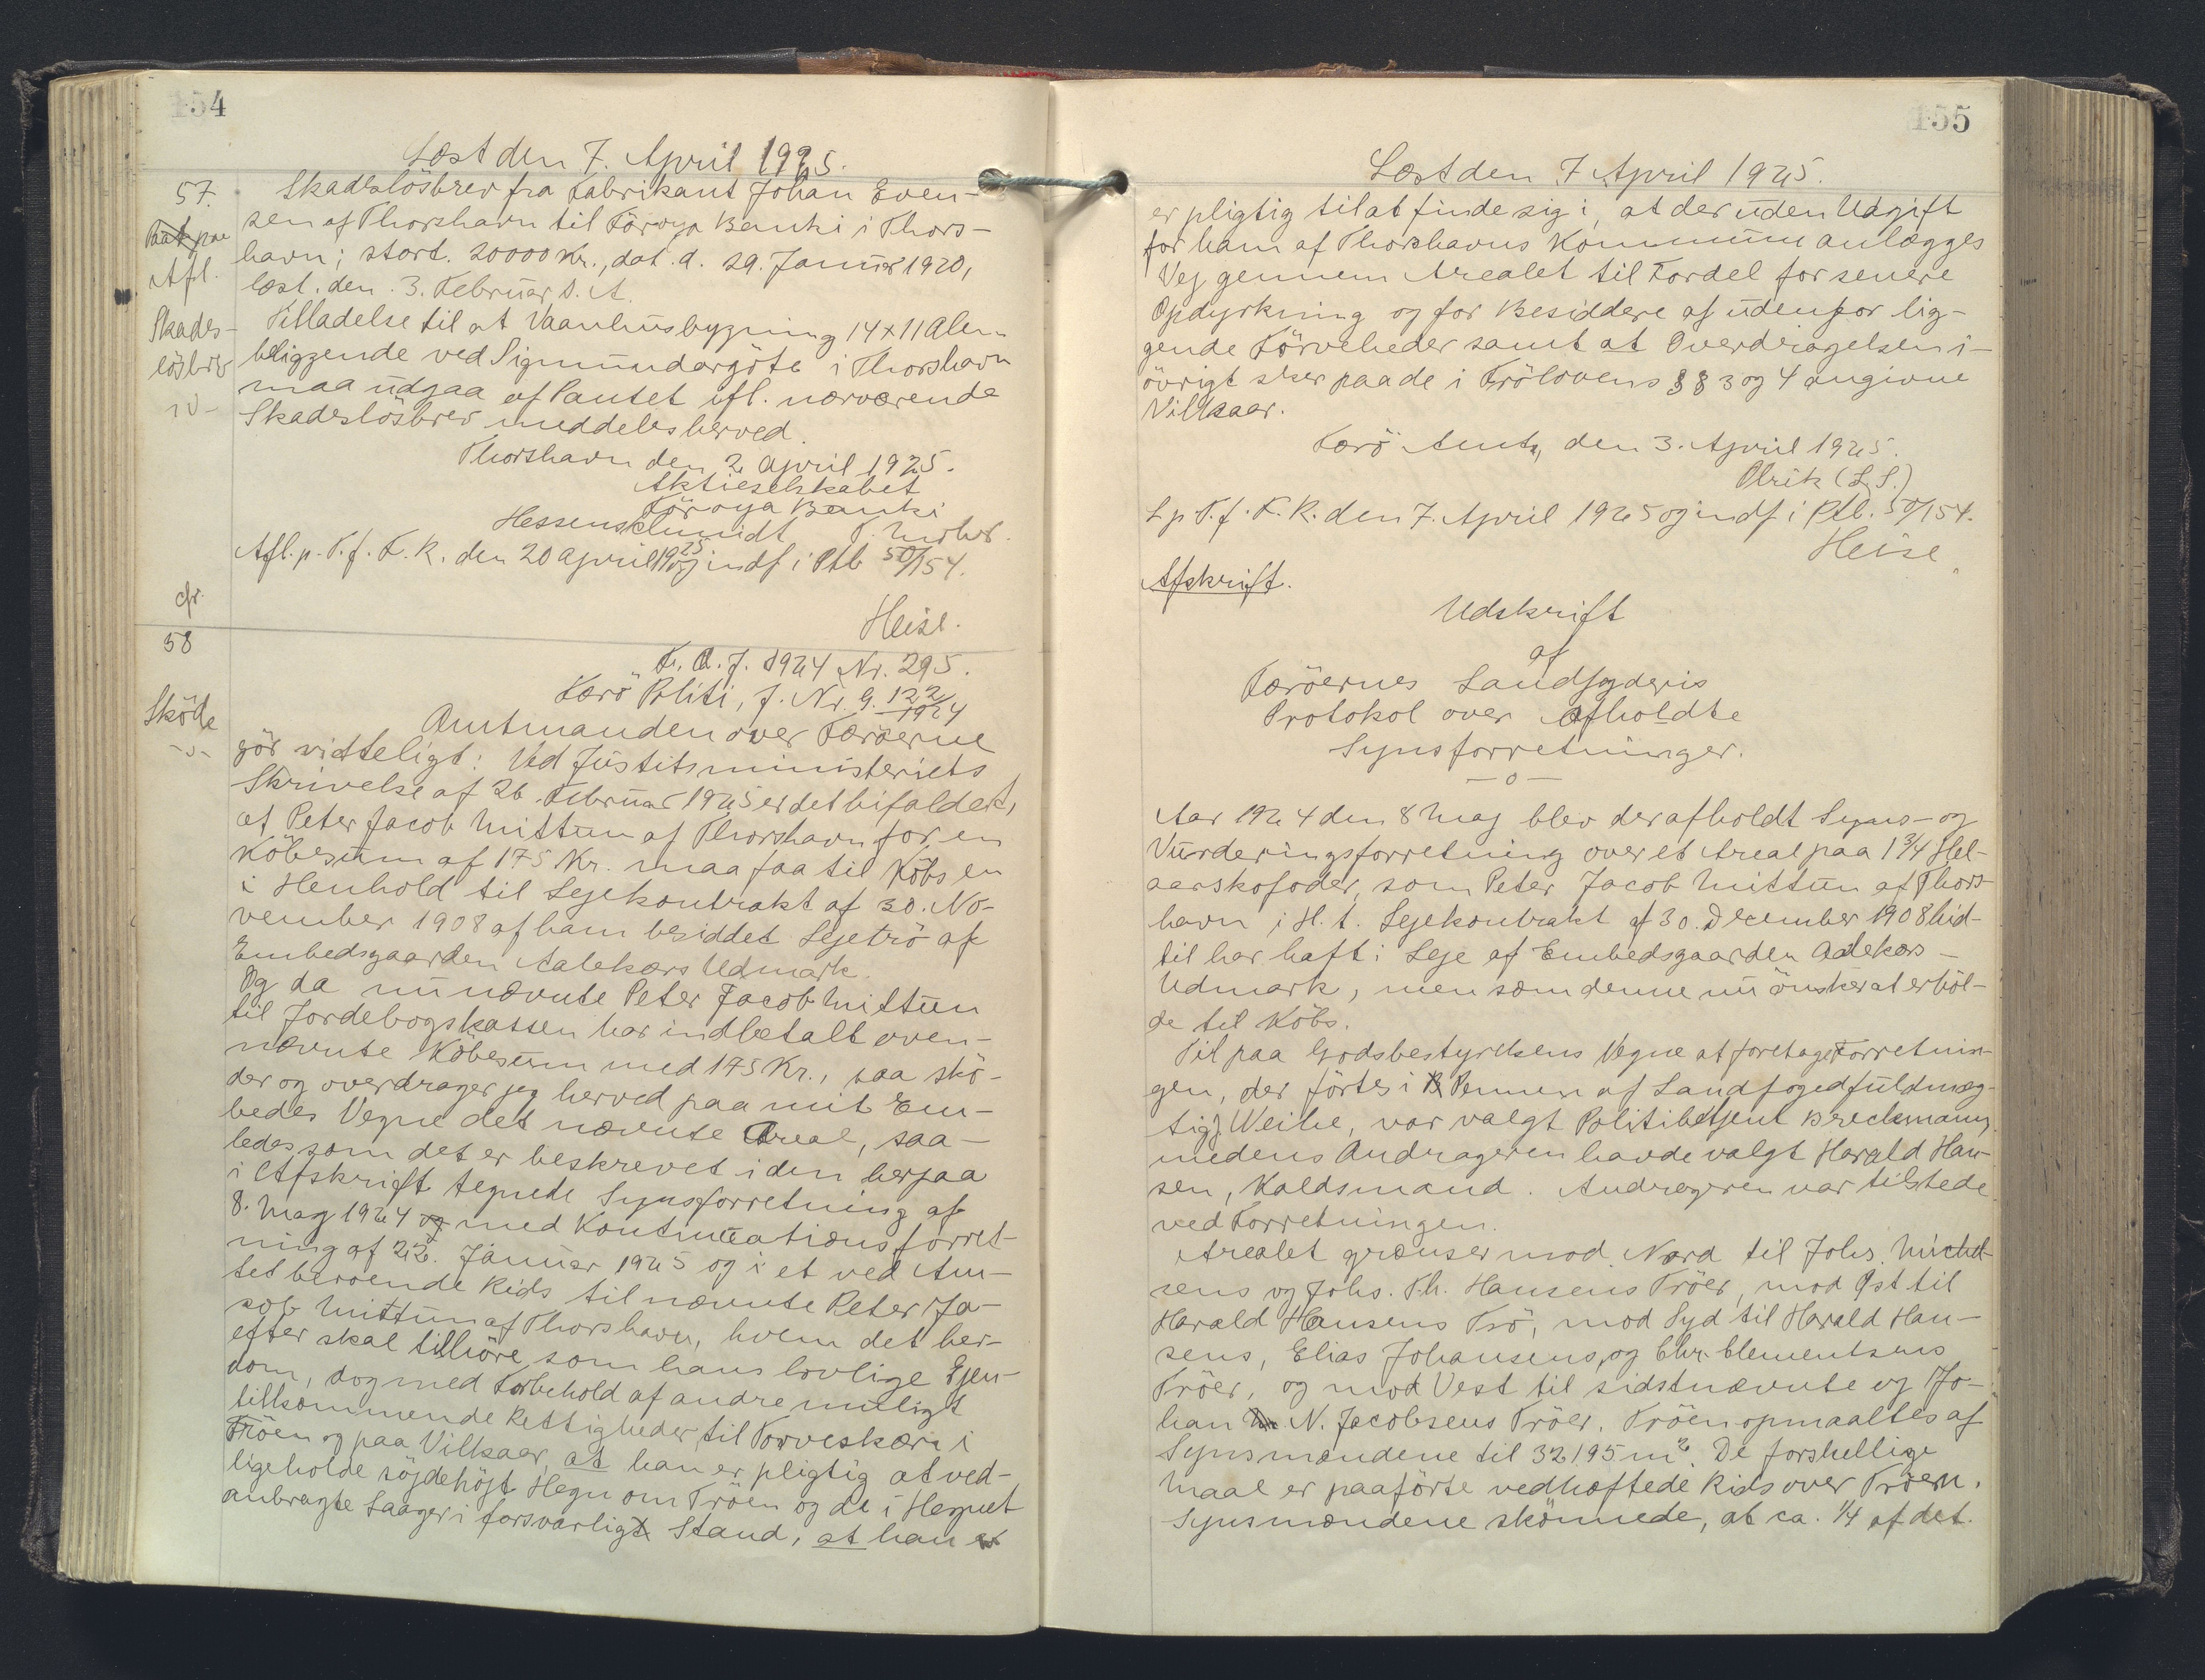 454
Læst den 7. April 1925.
57.
Skadesløsbrev fra Fabrikant Johan Even-
sen af Thorshavn til Föroya Banki i Thors-
havn; stort. 20000 Kr., dat. d. 29. Januar 1920,
læst. den. 3. Februar s. A.
paa
Afl.
Skades-
løsbrev
Tilladelse til at Vaanhusbygning 14 x 11 Alen
beliggende ved Sigmundargöte i Thorshavn
maa udgaa af Pantet ifl. nærværende
Skadesløsbrev meddeles herved.
Thorshavn den 2 april 1925.
Aktieselskabet
Föroya Banki
Hessenschmidt P. Mohr.
Afl. p. T. f. F. R. den 20 april 1925 og indf i Ptb 50/154.
Heise.
cfr.
58
Skøde
F. A. J. 1924 Nr. 295.
Færø Politi, J. Nr. G. 122/1924
Amtmanden over Færøerne
gör vitteligt: Ved Justitsministeriets
Skrivelse af 26. Februar 1925 er det bifaldet,
at Peter Jacob Mittun af Thorshavn for en
Köbesum af 175 Kr. maa faa til Köbs en
i Henhold til Lejekontrakt af 30. No-
vember 1908 af ham besiddet Lejetrö af
Embedsgaarden Aalekærs Udmark.
Og da nu nævnte Peter Jacob Mittun
til Jordebogskassen har indbetalt oven-
nævnte Köbesum med 175 Kr., saa skö-
der og overdrager jeg herved paa mit Em-
bedes Vegne det nævnte Areal, saa-
ledes som det er beskrevet i den herpaa
i Afskrift tegnede Synsforretning af
8. Maj 1924 og med Kontinuationsforret-
ning af 22. Januar 1925 og i et ved Am-
tet beroende Rids til nævnte Peter Ja-
cob Mittun af Thorshavn, hvem det her-
efter skal tilhöre som hans lovlige Ejen-
dom, dog med Forbehold af andre muligt
tilkommende Rettigheder til Torveskæri i
Tröen og paa Vilkaar, at han er pligtig at ved-
ligeholde söjdehöjt Hegn om Tröen og de i Hegnet
anbragte Laager i forsvarligt Stand, at han er
455
Læst den 7 April 1925.
er pligtig til at finde sig i, at der uden Udgift
for ham af Thorshavns Kommune anlægges
Vej gennem Arealet til Fordel for senere
Opdyrkning og for Besiddere af udenfor lig-
gende Törveheder samt at Overdragelsen i-
övrigt sker paa de i Trölovens §§ 3 og 4 angivne
Vilkaar.
Færö Amt, den 3. April 1925.
Olrik (L. S.)
L. p. T. f. F. R. den 7. April 1925 og indf i Ptb. 50/154.
Heise
Afskrift.
Udskrift
af
Færöernes Landfogderis
Protokol over Afholdte
Synsforretninger.
-o-
Aar 1924 den 8 Maj blev der afholdt Syns- og
Vurderingsforretning over et Areal paa 1 3/4 Hel-
aarskofoder, som Peter Jacob Mittun af Thors-
havn i H. t. Lejekontrakt af 30. December 1908 hid-
til har haft i Leje af Embedsgaarden Aalekærs-
Udmark, men som denne nu önsker at erhol-
de til Köbs.
Til paa Godsbestyrelsens Vegne at foretage Forretnin-
gen, der förtes i Pennen af Landfogedfuldmæg-
tig J. Weihe, var valgt Politibetjent Breckmann,
medens Andrageren havde valgt Harald Han-
sen, Kaldsmand. Andrageren var tilstede
ved Forretningen.
Arealet grænser mod Nord til Johs. Michel-
sens og Johs. Th. Hansens Tröer, mod Öst til
Harald Hansens Trö, mod Syd til Harald Han-
sens, Elias Johansens, og Chr. Clementsens
Tröer, og mod Vest til sidstnævnte og Jo-
han N. Jacobsens Tröer. Tröen opmaaltes af
Synsmændene til 32195 m². De forskellige
Maal er paaförte vedhæftede Rids over Tröen.
Synsmændene skönnede, at ca. 1/4 af det.